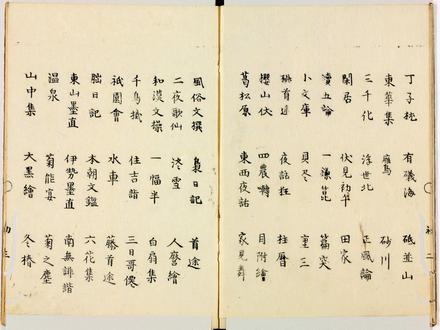 丁子桃 有礒海 砥並山
東華集 鴈鳥 砂川
三千化 浮世北 正風論
閑居 伏見初華 田家
續五論 一蓮 篇突
小文庫 貝冬 童三
夜話狂 柱暦
櫻山伏 四農囀 目附繪
葛松原 東西夜話 家見舞
風俗文撰 梟日記 首途
二夜歌仙 冬雪 人麿繪
和漢文操 一幅半 白扇集
千鳥掛 住吉詣 三日哥僊
祇園會 水車 藤首途
朏日記 本朝文鑑 六花集
東山墨直 伊勢墨直 南無誹諧
温泉 菊能宴 菊之塵
山中集 大黒繪 冬椿